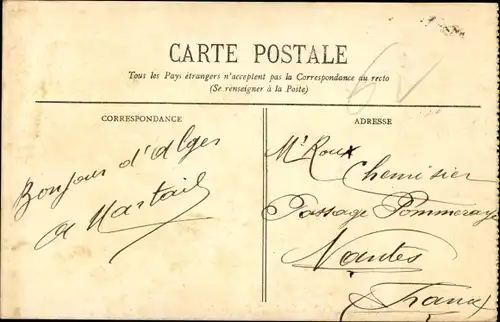 CARTE POSTALE
Tous les Pays étrangers n'acceptent pas la Correspondance au recto
(Se renseigner à la Poste)
CORRESPONDANCE
Bonjour d'Alger
A Martail
ADRESSE
Mr Roux
Chemisier
Passage Pommeraye
Nantes
France